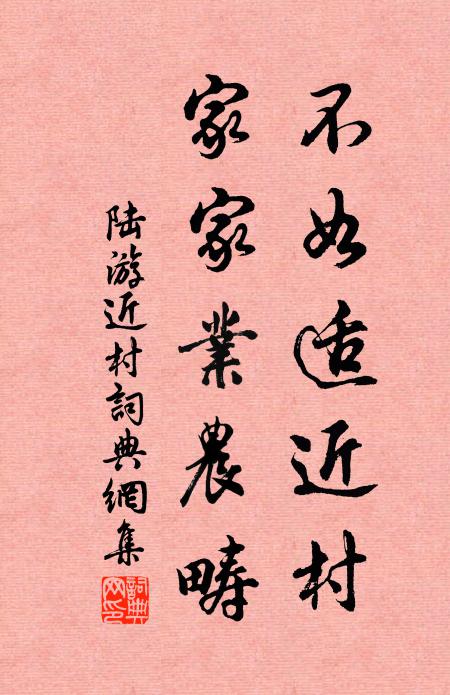 不如适近村
家家業農疇
陆游近村詞典網集
詞典網印